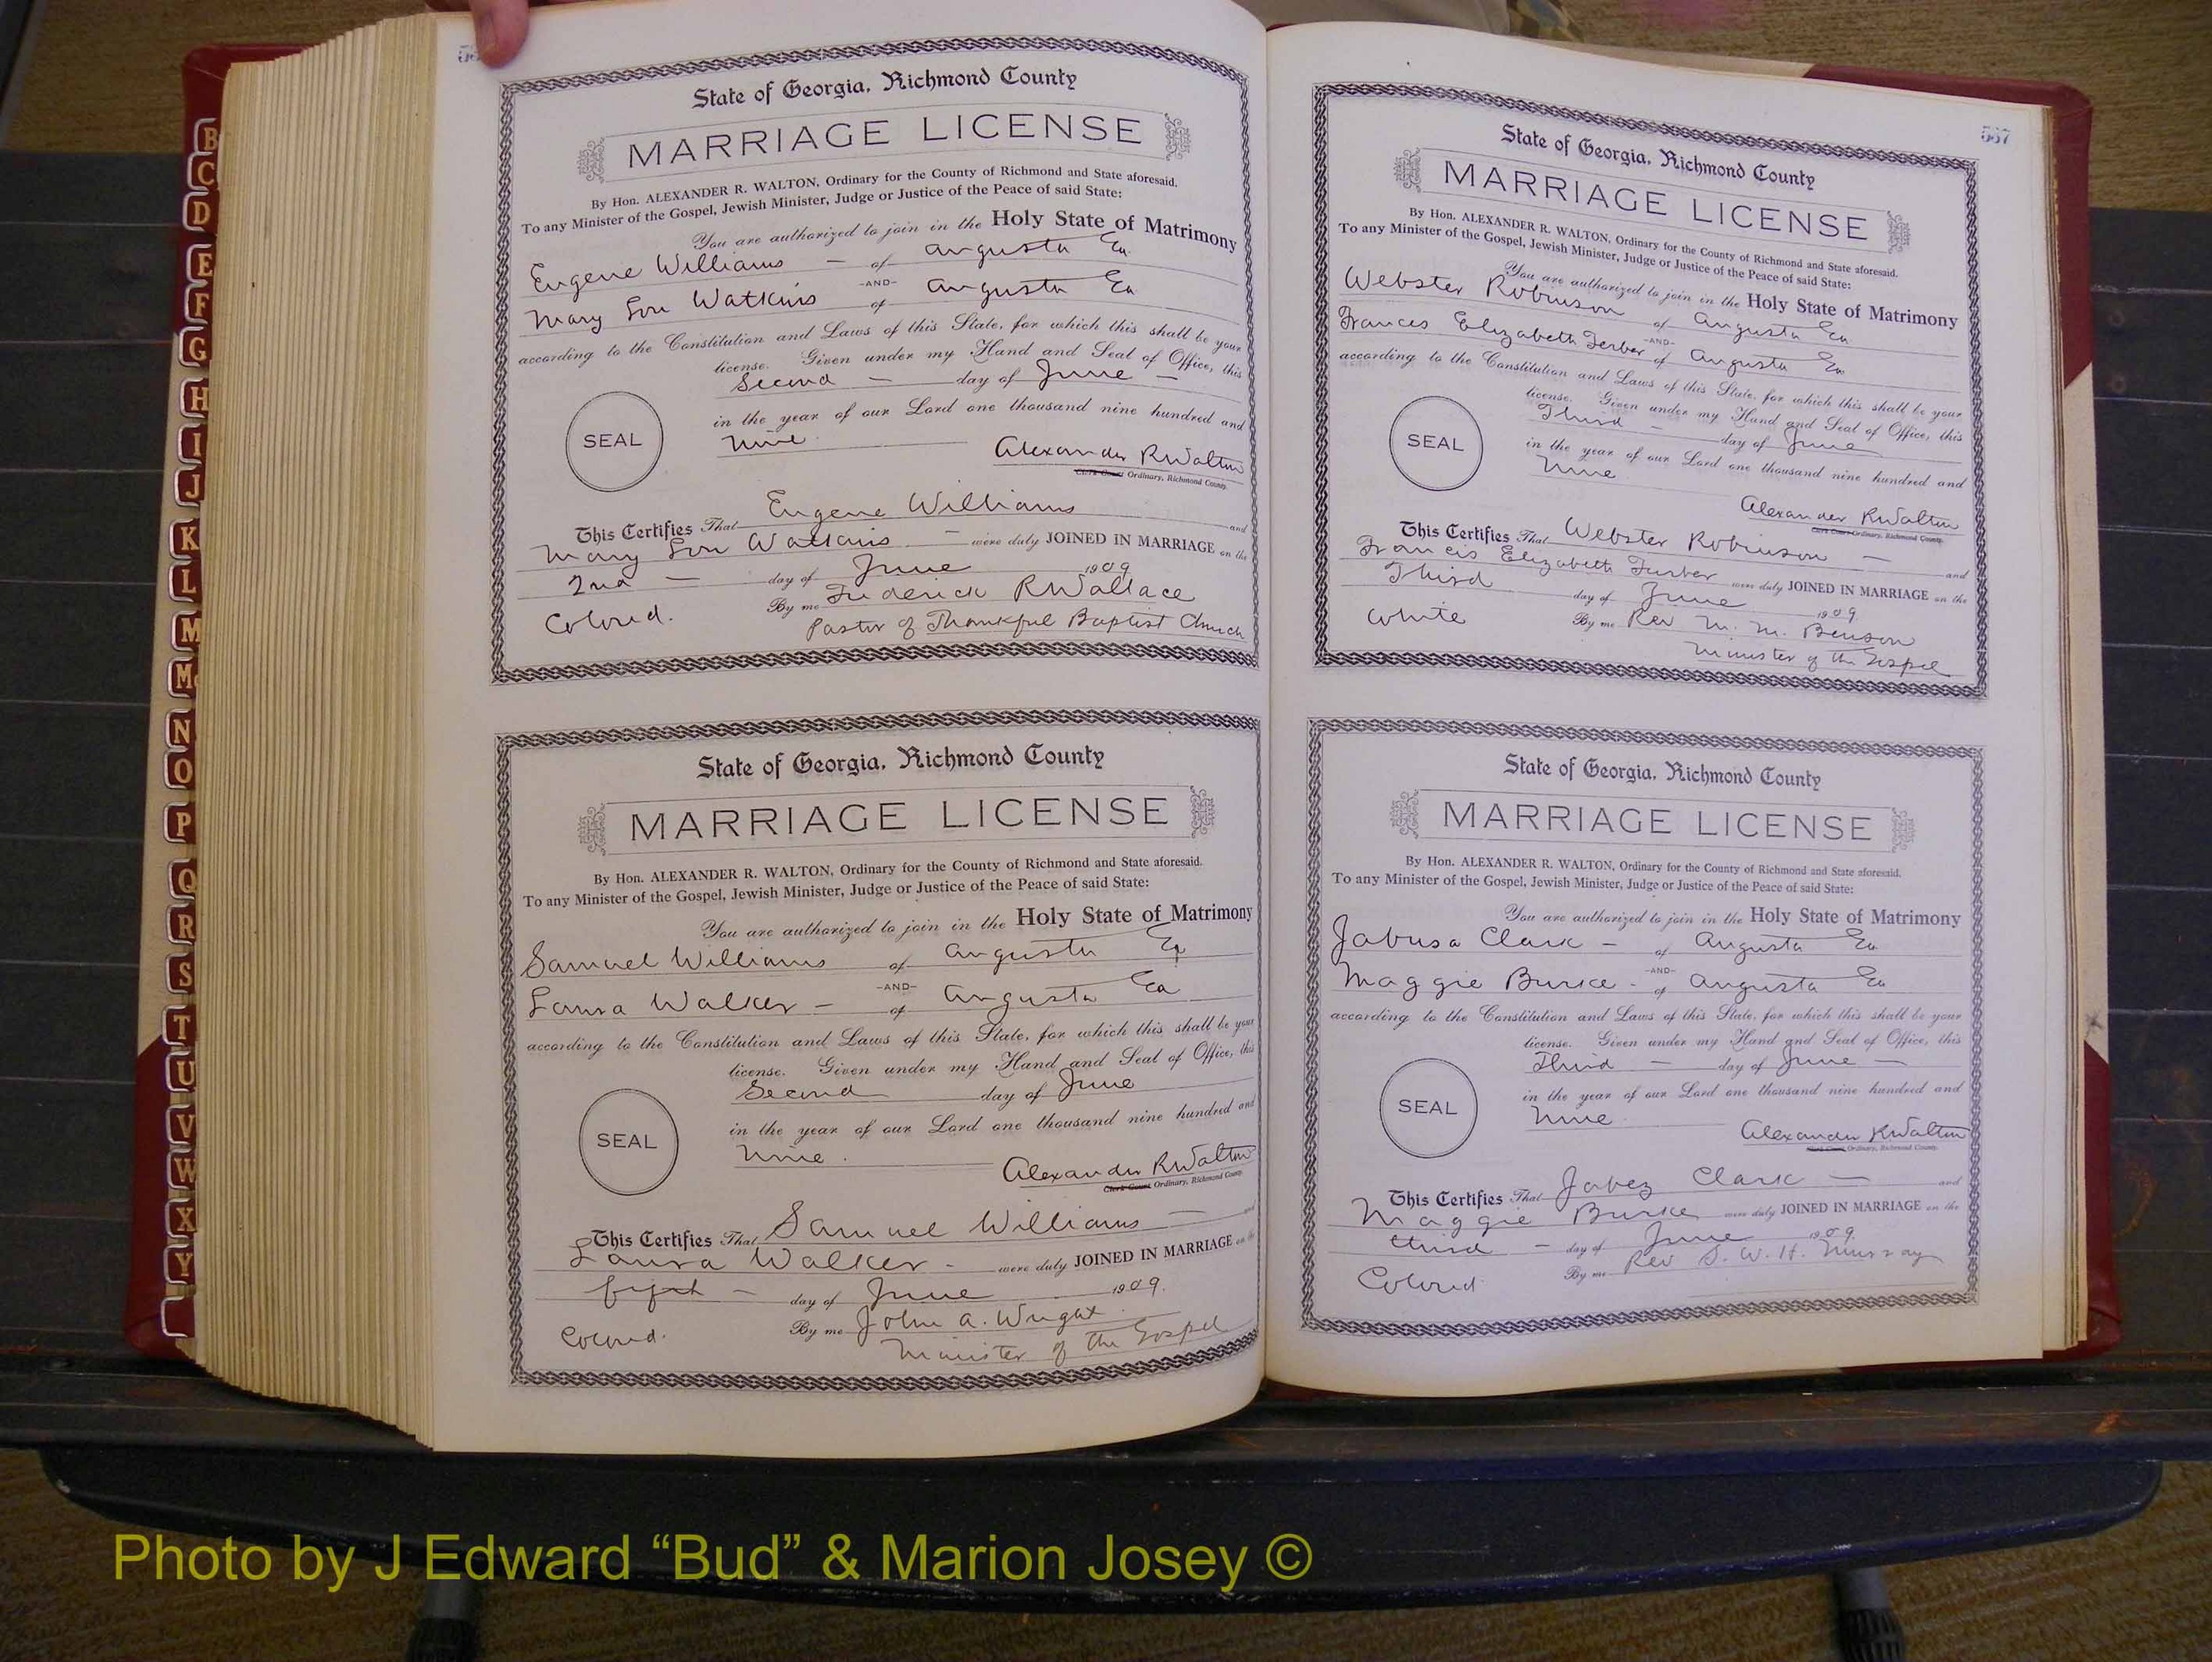 B
C
D
E
F
G
H
I
J
K
L
M
Mc
N
O
P
Q
R
S
T
U
V
W
X
Y
State of Georgia, Richmond County
MARRIAGE LICENSE
By Hon. ALEXANDER R. WALTON, Ordinary for the County of Richmond and State aforesaid.
To any Minister of the Gospel, Jewish Minister, Judge or Justice of the Peace of said State:
You are authorized to join in the Holy State of Matrimony
Eugene Williams — of Augusta Ga
-AND-
Mary Lou Watkins of Augusta Ga
according to the Constitution and Laws of this State, for which this shall be your
license. Given under my Hand and Seal of Office, this
Second — day of June —
in the year of our Lord one thousand nine hundred and
nine.
SEAL
Alexander R Walton
Clerk Court Ordinary, Richmond County.
This Certifies That Eugene Williams and
Mary Lou Watkins — were duly JOINED IN MARRIAGE on the
2nd — day of June 1909
Colored. By me Frederick R Wallace
Pastor of Thankful Baptist Church
State of Georgia, Richmond County
MARRIAGE LICENSE
By Hon. ALEXANDER R. WALTON, Ordinary for the County of Richmond and State aforesaid.
To any Minister of the Gospel, Jewish Minister, Judge or Justice of the Peace of said State:
You are authorized to join in the Holy State of Matrimony
Samuel Williams of Augusta Ga
-AND-
Laura Walker — of Augusta Ga
according to the Constitution and Laws of this State, for which this shall be your
license. Given under my Hand and Seal of Office, this
Second day of June
in the year of our Lord one thousand nine hundred and
nine.
SEAL
Alexander R Walton
Clerk Court Ordinary, Richmond County.
This Certifies That Samuel Williams — and
Laura Walker - were duly JOINED IN MARRIAGE on the
— day of June 1909.
Colored. By me John A. Wright
Minister of the Gospel
567
State of Georgia, Richmond County
MARRIAGE LICENSE
By Hon. ALEXANDER R. WALTON, Ordinary for the County of Richmond and State aforesaid.
To any Minister of the Gospel, Jewish Minister, Judge or Justice of the Peace of said State:
You are authorized to join in the Holy State of Matrimony
Webster Robinson of Augusta Ga
-AND-
Frances Elizabeth of Augusta Ga
according to the Constitution and Laws of this State, for which this shall be your
license. Given under my Hand and Seal of Office, this
Third — day of June
in the year of our Lord one thousand nine hundred and
nine
SEAL
Alexander R Walton
Clerk Court Ordinary, Richmond County.
This Certifies That Webster Robinson — and
Francis Elizabeth were duly JOINED IN MARRIAGE on the
Third day of June 1909
White By me Rev M. M. Benson
Minister of the Gospel
State of Georgia, Richmond County
MARRIAGE LICENSE
By Hon. ALEXANDER R. WALTON, Ordinary for the County of Richmond and State aforesaid.
To any Minister of the Gospel, Jewish Minister, Judge or Justice of the Peace of said State:
You are authorized to join in the Holy State of Matrimony
Jabusa Clark — of Augusta Ga
-AND-
Maggie Burke - of Augusta Ga
according to the Constitution and Laws of this State, for which this shall be your
license. Given under my Hand and Seal of Office, this
Third — day of June —
in the year of our Lord one thousand nine hundred and
nine
SEAL
Alexander R Walton
Clerk Court Ordinary, Richmond County.
This Certifies That Jabez Clark — and
Maggie Burke were duly JOINED IN MARRIAGE on the
third — day of June 1909
Colored By me Rev S. W. H. Murray
Photo by J Edward “Bud” & Marion Josey ©